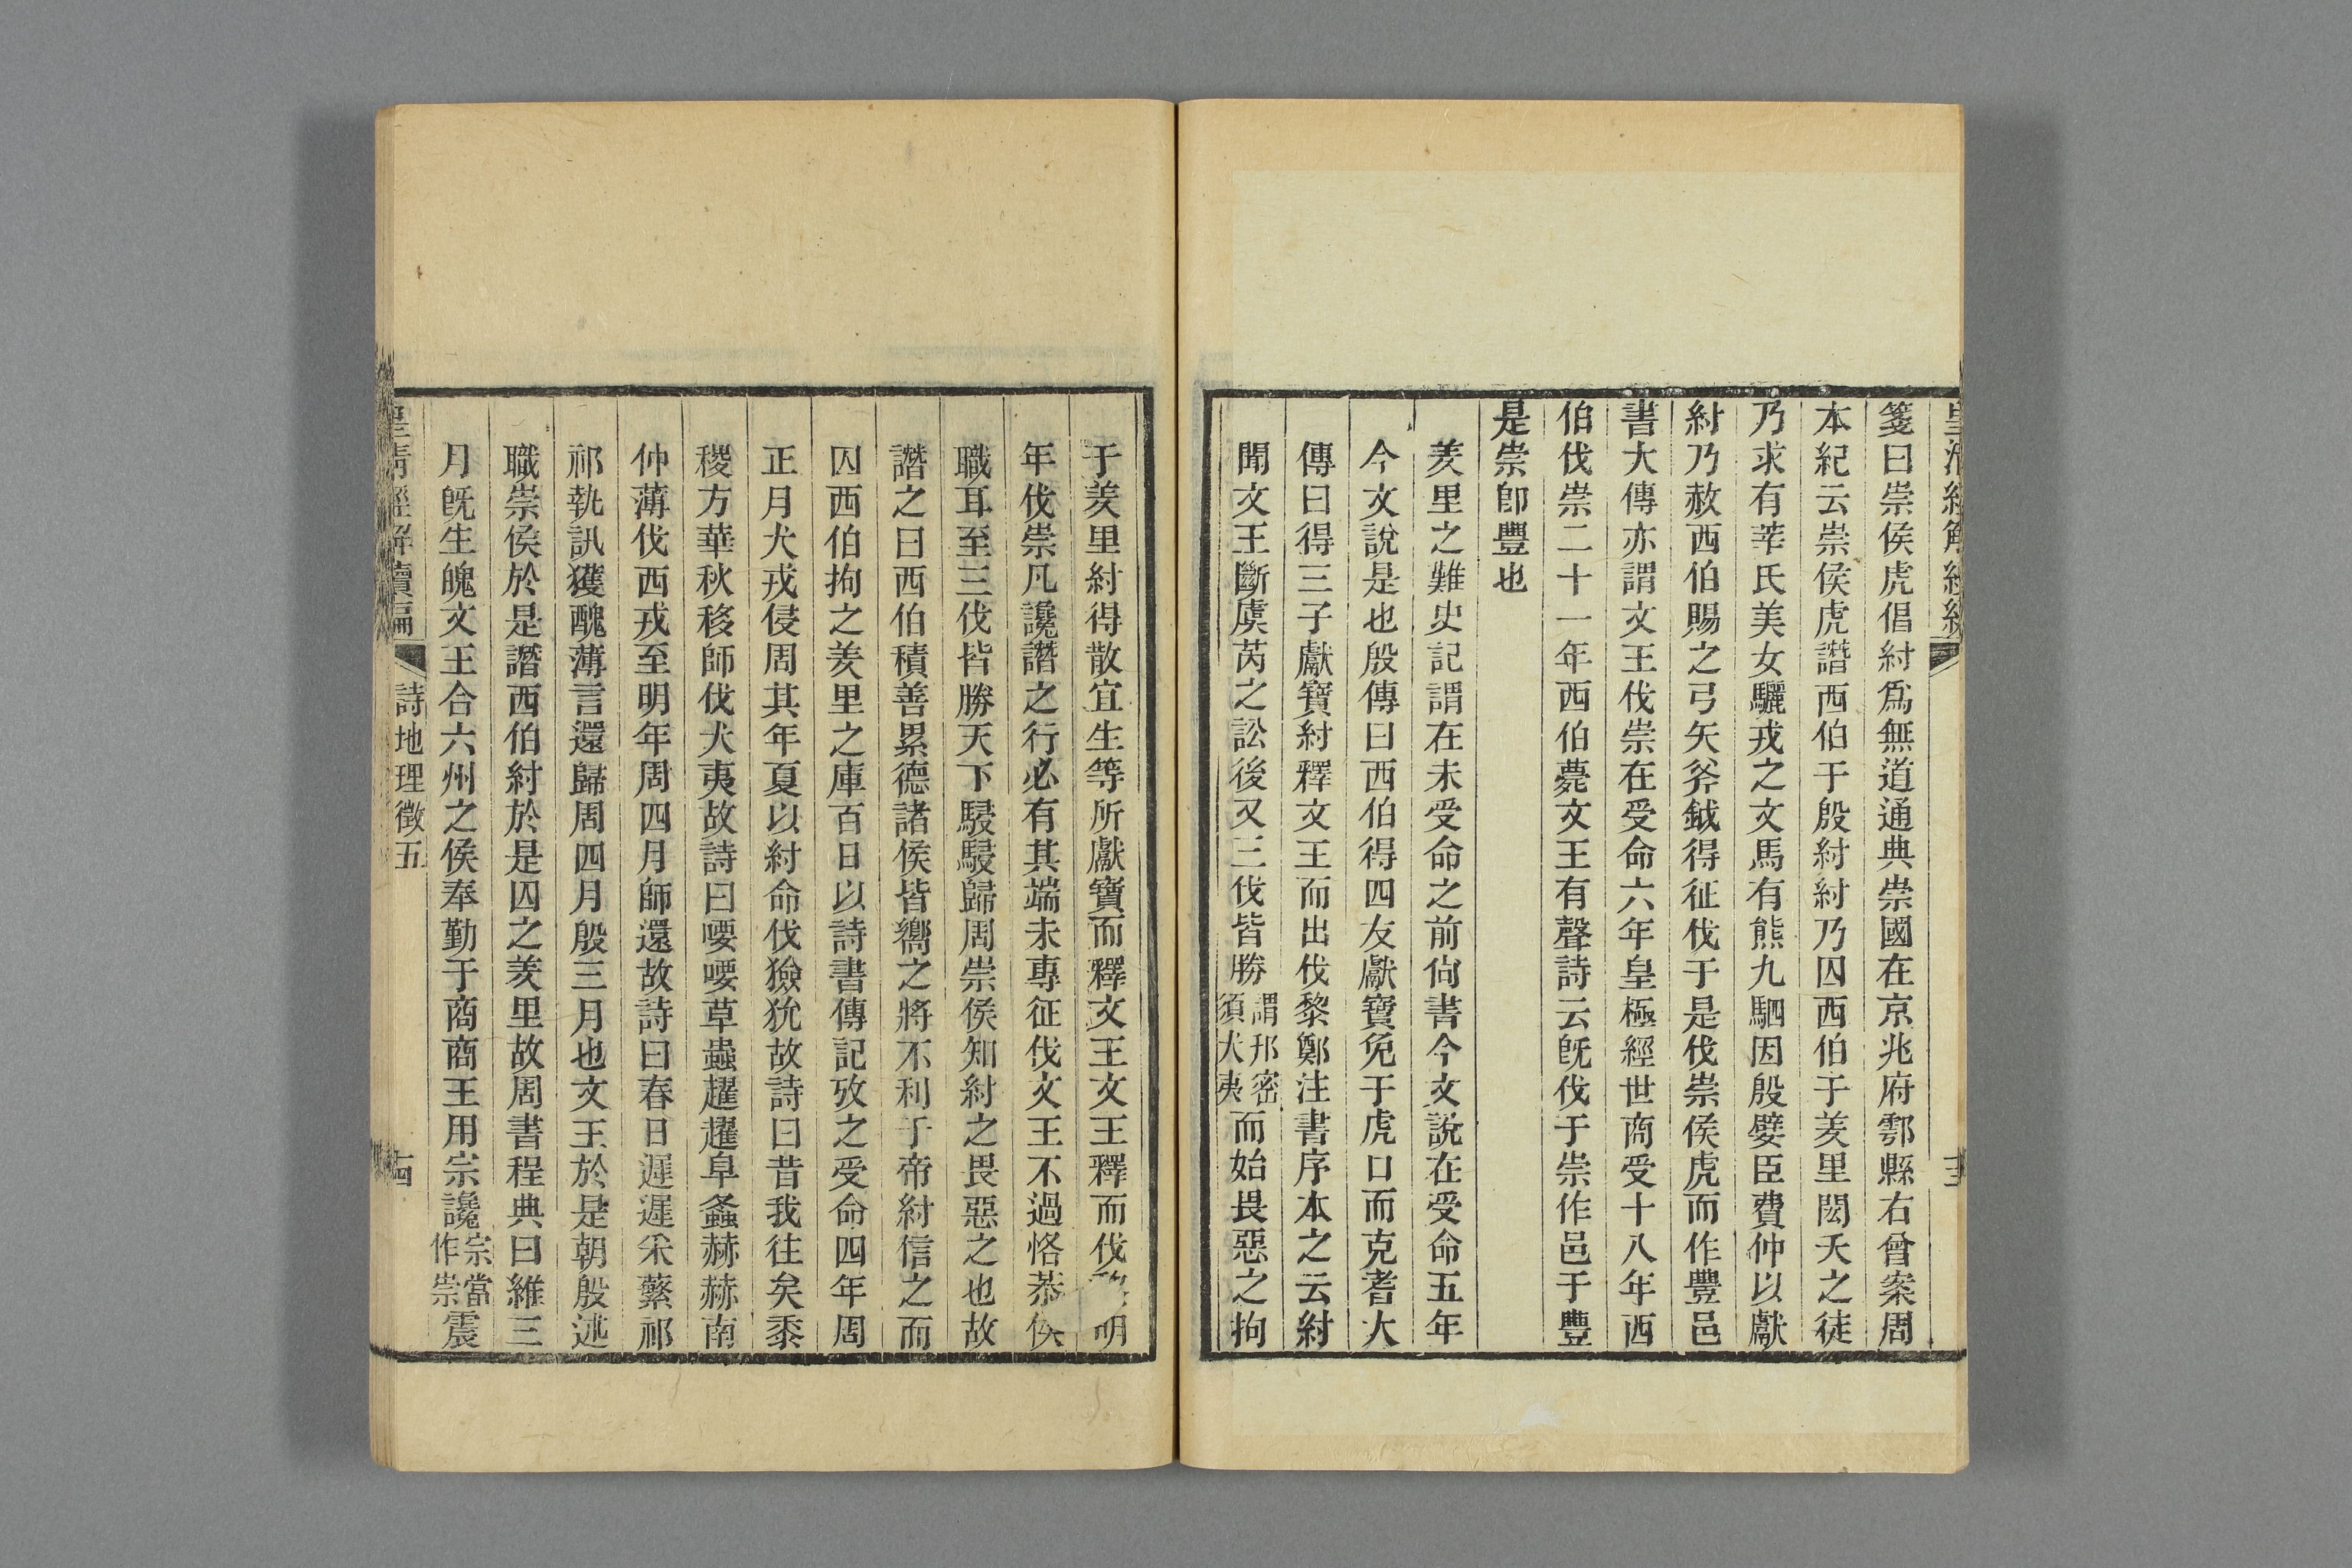 箋曰崇侯虎倡紂爲無道通典崇國在京兆府鄠縣右曾案周
本紀云崇侯虎譖西伯于殷紂紂乃囚西伯于羑里閎夭之徒
乃求有莘氏美女驪戎之文馬有熊九駟因殷嬖臣費仲以獻
紂乃赦西伯賜之弓矢斧鉞得征伐于是伐崇侯虎而作豐邑
書大傳亦謂文王伐崇在受命六年皇極經世商受十八年西
伯伐崇二十一年西伯薨文王有聲詩云旣伐于崇作邑于豐
是崇卽豐也
羑里之難史記謂在未受命之前尙書今文說在受命五年
今文說是也殷傳曰西伯得四友獻寶免于虎口而克耆大
傳曰得三子獻寶紂釋文王而出伐黎鄭注書序本之云紂
聞文王斷虞芮之訟後又三伐皆勝謂邘密須犬夷而始畏惡之拘
于羑里紂得散宜生等所獻寶而釋文王文王釋而伐明
年伐崇凡讒譖之行必有其端未專征伐文王不過恪恭侯
職耳至三伐皆勝天下駸駸歸周崇侯知紂之畏惡之也故
譖之曰西伯積善累德諸侯皆嚮之將不利于帝紂信之而
囚西伯拘之羑里之庫百日以詩書傳記攷之受命四年周
正月犬戎侵周其年夏以紂命伐獫狁故詩曰昔我往矣黍
稷方華秋移師伐犬夷故詩曰喓喓草蟲趯趯阜螽赫赫南
仲薄伐西戎至明年周四月師還故詩曰春日遲遲采蘩祁
祁執訊獲醜薄言還歸周四月殷三月也文王於是朝殷述
職崇侯於是譖西伯紂於是囚之羑里故周書程典曰維三
月旣生魄文王合六州之侯奉勤于商商王用宗讒宗當作崇震
皇淸經解續編
詩地理徵五